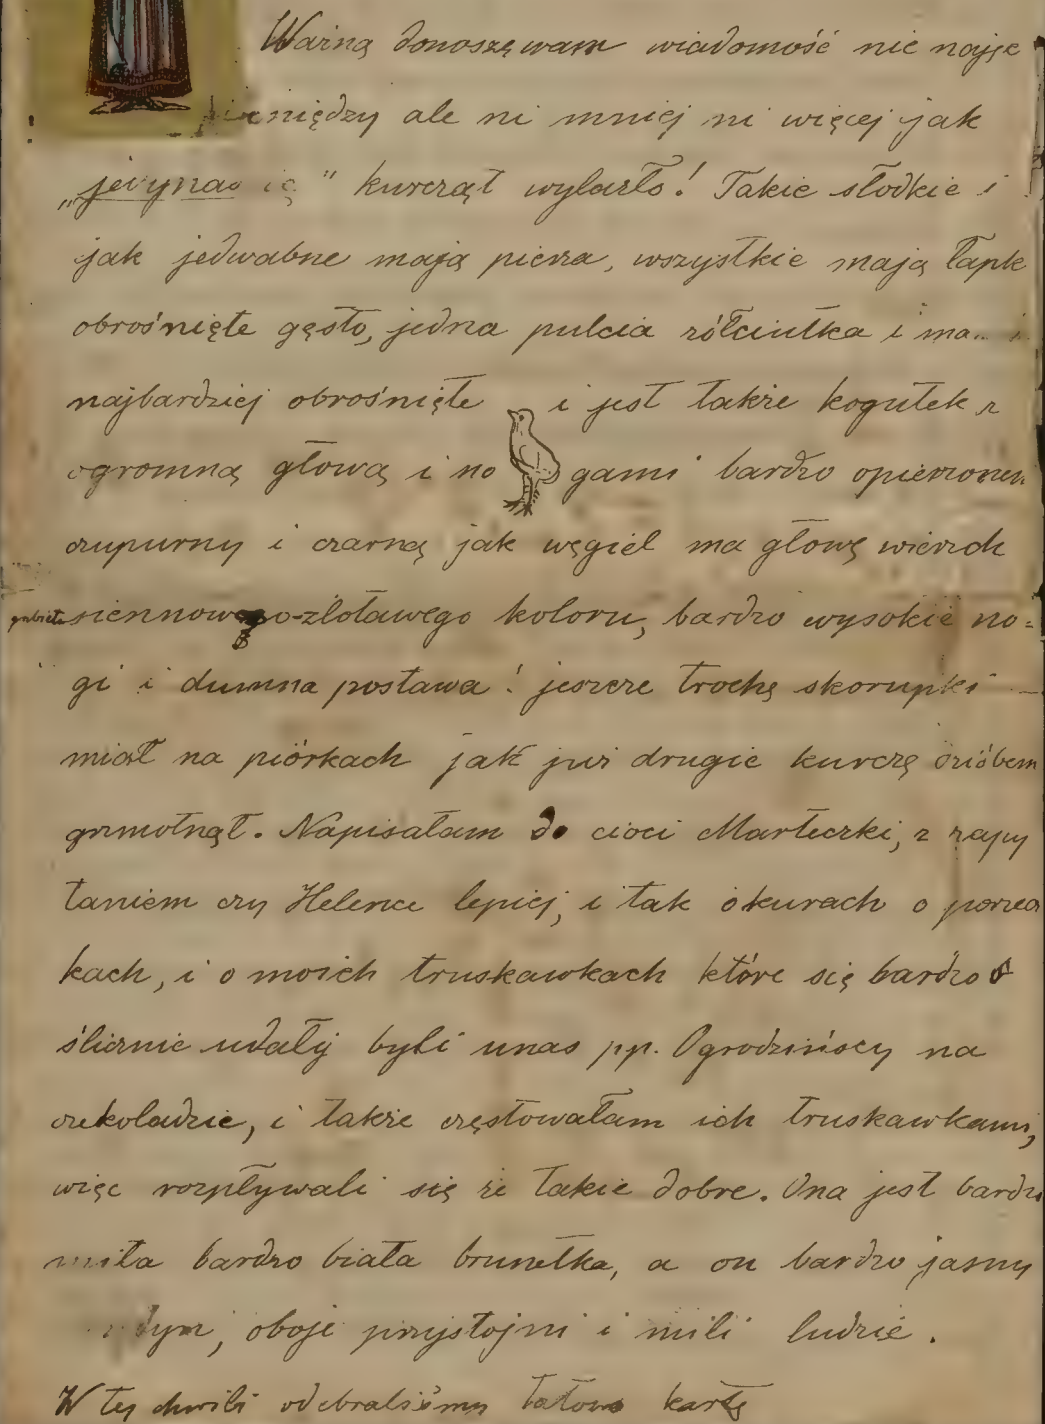 Ważną donoszę wam wiadomość nie
pieniędzy ale ni mniej ni więcej jak
kurcząt wylazło! Takie słodkie i
jak jedwabne mają pierza, wszystkie mają łapk
obrośnięte gęsto, jedna pulcia żółciutka i ma
najbardziej obrośnięte i jest także kogutek z
ogromną głową i no gami bardzo opierzonem
czupurny i czarną jak węgiel ma głowę wierzch
siennowego-złotawego koloru, bardzo wysokie no=
gi i dumna postawa! jeszcze trochę skorupki
miał na piórkach jak już drugie kurczę dzióbem
grzmotnął. Napisałam do cioci Marteczki, z zapy
taniem czy Helence lepiej, i tak o kurach o porzecz
kach, i o moich truskawkach które się bardzo
ślicznie udały byli unas pp. Ogrodzińscy na
czekoladzie, i także częstowałam ich truskawkami,
więc rozpływali się że takie dobre. Ona jest bardzo
miła bardzo biała brunetka, a on bardzo jasny
oboje przystojni i mili ludzie.
W tej chwili odebraliśmy tatowa kartę